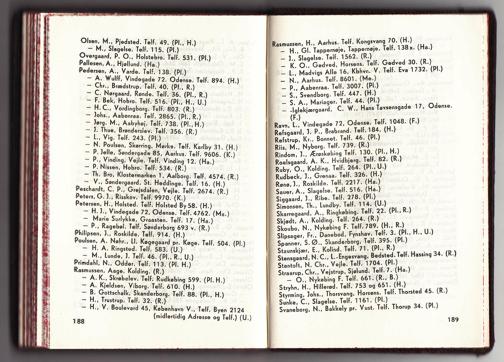 Olsen, M., Pjedsted. Telf. 49. (Pl., H.)
— M., Slagelse. Telf. 115. (Pl.)
Overgaard, P. O., Holstebro. Telf. 531. (Pl.)
Pallesen, A., Hjelund. (Ha.)
Pedersen, A., Varde. Telf. 138. (Pl.)
— A. Wulff, Vindegade 72, Odense. Telf. 894. (H.)
— Chr., Brædstrup. Telf. 40. (Pl., R.)
— C. Nørgaard, Rønde. Telf. 36. (Pl., R.)
— F. Bek, Hobro. Telf. 516. (Pl., H., U.)
— H. C., Vordingborg. Telf. 803. (R.)
— Johs., Aabenraa. Telf. 2865. (Pl., R.)
— Jørg. M., Asbyhøj. Telf. 738. (Pl., H.)
— J. Thue, Brønderslev. Telf. 356. (R.)
— L., Vig. Telf. 243. (Pl.)
— N. Poulsen, Skerring, Mørke. Telf. Karlby 31. (H.)
— P. Jelle, Søndergade 85, Aarhus. Telf. 9606. (K.)
— P., Vinding, Vejle. Telf. Vinding 12. (Ha.)
— P. Nissen, Hobro. Telf. 534. (R.)
— Th. Bro, Klostermarken 1, Aalborg. Telf. 4574. (R.)
— V., Søndergaard, St. Heddinge. Telf. 16. (H.)
Peschardt, C. P., Grejsdalen, Vejle. Telf. 2674. (R.)
Peters, G. I., Risskov. Telf. 9970. (K.)
Petersen, H., Holsted. Telf. Holsted By 58. (H.)
— H. J., Vindegade 72, Odense. Telf. 4762. (Mo.)
— Marie Surlykke, Graasten. Telf. 17. (Ha.)
— P., Ragebøl. Telf. Sønderborg 693 v. (R.)
Philipsen, J., Roskilde. Telf. 914. (H.)
Poulsen, A. Nalv., Ll. Køgegaard pr. Køge. Telf. 504. (Pl.)
— H. A., Ringsted. Telf. 583. (U.)
— M., Lunde, J. Telf. 46. (Pl., R., U.)
Primdahl, N., Odder. Telf. 113. (Pl. H.)
Rasmussen, Aage, Kolding. (R.)
— A. K., Skrøbelev. Telf. Rudkøbing 599. (Pl. H.)
— A. Kjeldsen, Viborg. Telf. 610. (H.)
— B. Gottschalk, Skanderborg. Telf. 88. (Pl., H.)
— H., Trustrup. Telf. 32. (R.)
— H., V. Boulevard 45, København V., Telf. Byen 2124
(midlertidig Adresse og Telf.) (U.)
188
Rasmussen, H., Aarhus. Telf. Kongsvang 70. (H.)
— H., Gl. Tappernøje, Tappernøje. Telf. 138 x. (Ha.)
— I., Slagelse. Telf. 1562. (R.)
— K. O., Gedved, Horsens. Telf. Gedved 30. (R.)
— L., Madvigs Alle 16, Kbhvn. V. Telf. Eva 1732. (Pl.)
— N., Aarhus. Telf. 8601. (Mo.)
— P., Aabenraa. Telf. 3007. (Pl.)
— S., Svendborg. Telf. 447. (H.)
— S. A., Mariager. Telf. 44. (Pl.)
— Iglekjærgaard, C. W., Hans Tavsensgade 17, Odense.
(F.)
Ravn, L., Vindegade 72, Odense. Telf. 1048. (F.)
Refsgaard, J. P., Brabrand. Telf. 184. (H.)
Rafstrup, Kr., Bonnet. Telf. 46. (Pl.)
Riis, M., Nyborg. Telf. 739. (R.)
Rindom, J., Ærøskøbing. Telf. 130. (Pl., H.)
Roelsgaard, A. K., Hvidbjerg. Telf. 82. (R.)
Ruby, O., Kolding. Telf. 264. (Pl., U.)
Rudbeck, J., Grenaa. Telf. 326. (H.)
Rønø, J., Roskilde. Telf. 2217. (Ha.)
Sauer, A., Slagelse. Telf. 516. (Ha.)
Siggaard, J., Ribe. Telf. 278. (Pl.)
Simonsen, Th., Laudby. Telf. 114. (U.)
Skarregaard, A., Ringkøbing. Telf. 22. (Pl., R.)
Skjødt, A., Kolding. Telf. 264. (R.)
Skoubo, N., Nykøbing F. Telf. 789. (H., R.)
Slipsager, Fr., Davrbod, Fynshav. Telf. 3. (Pl., H., U.)
Spanner, S. Ø., Skanderborg. Telf. 395. (Pl.)
Staunskjær, E., Kolind. Telf. 71. (Pl., R.)
Stensgaard, N. C., L.-Engesvang, Bødsted. Telf. Hassing 34. (R.)
Stentoft, N. Chr., Vejle. Telf. 1704. (Pl.)
Straarup, Chr., Vejstrup, Sjølund. Telf. 7. (Ha.)
— O., Nykøbing F. Telf. 661. (R., B.)
Stryhn, H., Hillerød. Telf. 753 og 651. (H.)
Styrming, Johs., Thorsvang, Horsens. Telf. Thorsted 45. (R.)
Sunke, C., Slagelse. Telf. 1161. (Pl.)
Svaneborg, N., Bakkely pr. Vust. Telf. Thorup 34. (Pl.)
189